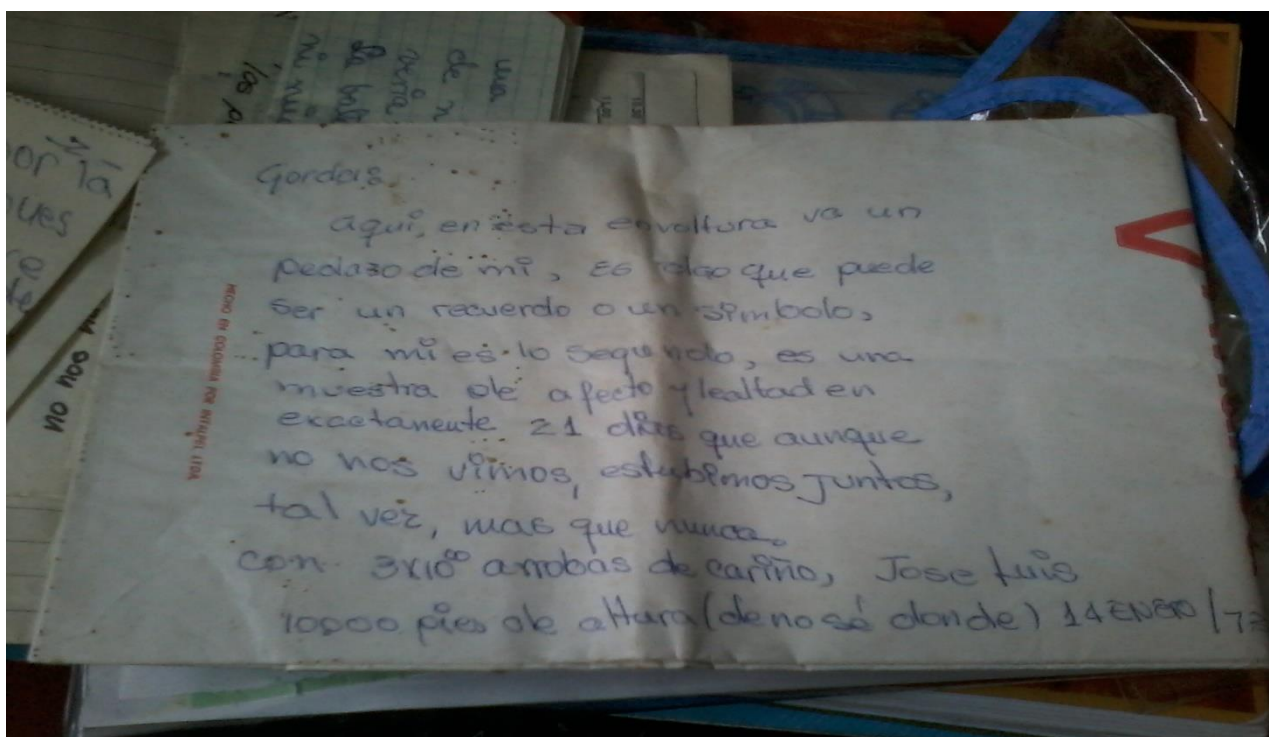 Gordis
aquí, en esta envoltura va un
pedazo de mi, es algo que puede
ser un recuerdo o un símbolo,
para mi es lo segundo, es una
muestra de afecto y lealtad en
exactamente 21 días que aunque
no nos vimos, estubimos juntos,
tal vez, mas que nunca.
con 3x10⁰⁰ arrobas de cariño, Jose Luis
10000 pies de altura (de no sé donde) 14 ENERO /7
HECHO EN COLOMBIA POR
una
de n
ni
los
or
ues
ou